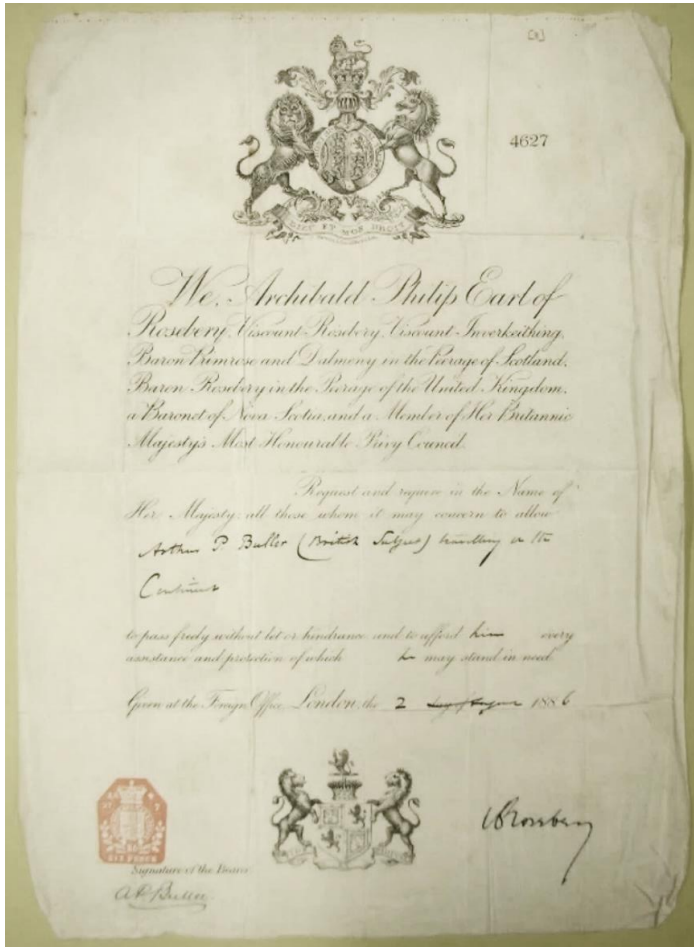 [8]
4627
DIEU ET MON DROIT
We, Archibald Philip Earl of
Rosebery, Viscount Rosebery, Viscount Inverkeithing,
Baron Primrose and Dalmeny in the Peerage of Scotland,
Baron Rosebery in the Peerage of the United Kingdom,
a Baronet of Nova Scotia, and a Member of Her Britannic
Majesty's Most Honourable Privy Council.
Request and require in the Name of
Her Majesty, all those whom it may concern to allow
Arthur P Buller (British Subject) travelling on the
Continent
to pass freely without let or hindrance and to afford him every
assistance and protection of which he may stand in need.
Given at the Foreign Office, London, the 2 day of August 1886
SIX PENCE
Rosebery
Signature of the Bearer
A P Buller